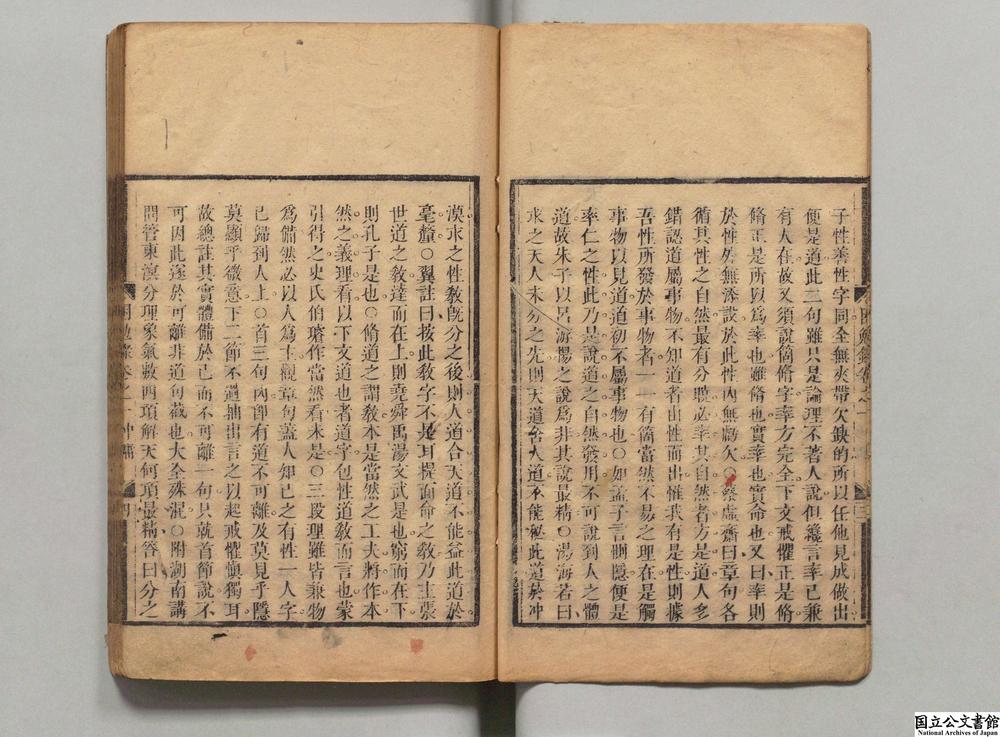 子性善性字同全無夾帶欠缺的所以任他見成做出
便是道此二句雖只是論理不著人說但纔言率已兼
有人在故又須說箇脩字率方完全下文戒懼正是脩
脩正是所以爲率也雖脩也實率也實命也又曰率則
於性外無添設於此性內無虧欠○蔡虛齋曰章句各
循其性之自然最有分曉必率其自然者方是道人多
錯認道屬事物不知道者出性而出惟我有是性則據
吾性所發於事物者一一有箇當然不易之理在是觸
事物以見道道初不屬事物也○如孟子言惻隱便是
率仁之性此乃是說道之自然發用不可說到人之體
道故朱子以呂游楊之說爲非其說最精○湯海若曰
求之天人未分之先則天道含人道不能勉此道於冲
漠求之性敎旣分之後則人道合天道不能益此道於
毫釐○翼註曰按此敎字不是耳提面命之敎乃主張
世道之敎達而在上則堯舜禹湯文武是也窮而在下
則孔子是也○脩道之謂敎本是當然之工夫將作本
然之義理看以下文道也者道字包性道敎而言也蒙
引得之史氏伯璿作當然看未是○三段理雖皆兼物
爲備然必以人爲主觀章句蓋人知己之有性一人字
已歸到人上○首三句內卽有道不可離及莫見乎隱
莫顯乎微意下二節不過抽出言之以起戒懼愼獨耳
故總註其實體備於己而不可離一句只就首節說不
可因此遂於可離非道句截也大全殊混○附湖南講
問管東溟分理象氣數四項解天何項最精答曰分之
困勉錄卷之一 中庸
四